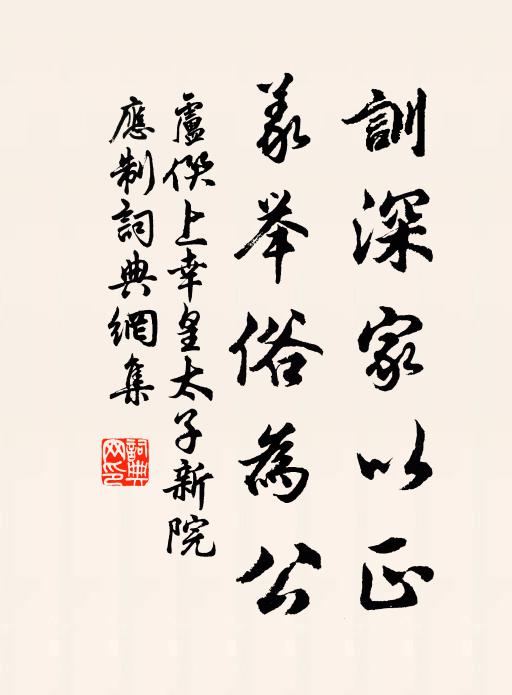 訓深家以正
義举俗為公
盧僎上幸皇太子新院
應制詞典網集
詞典網印